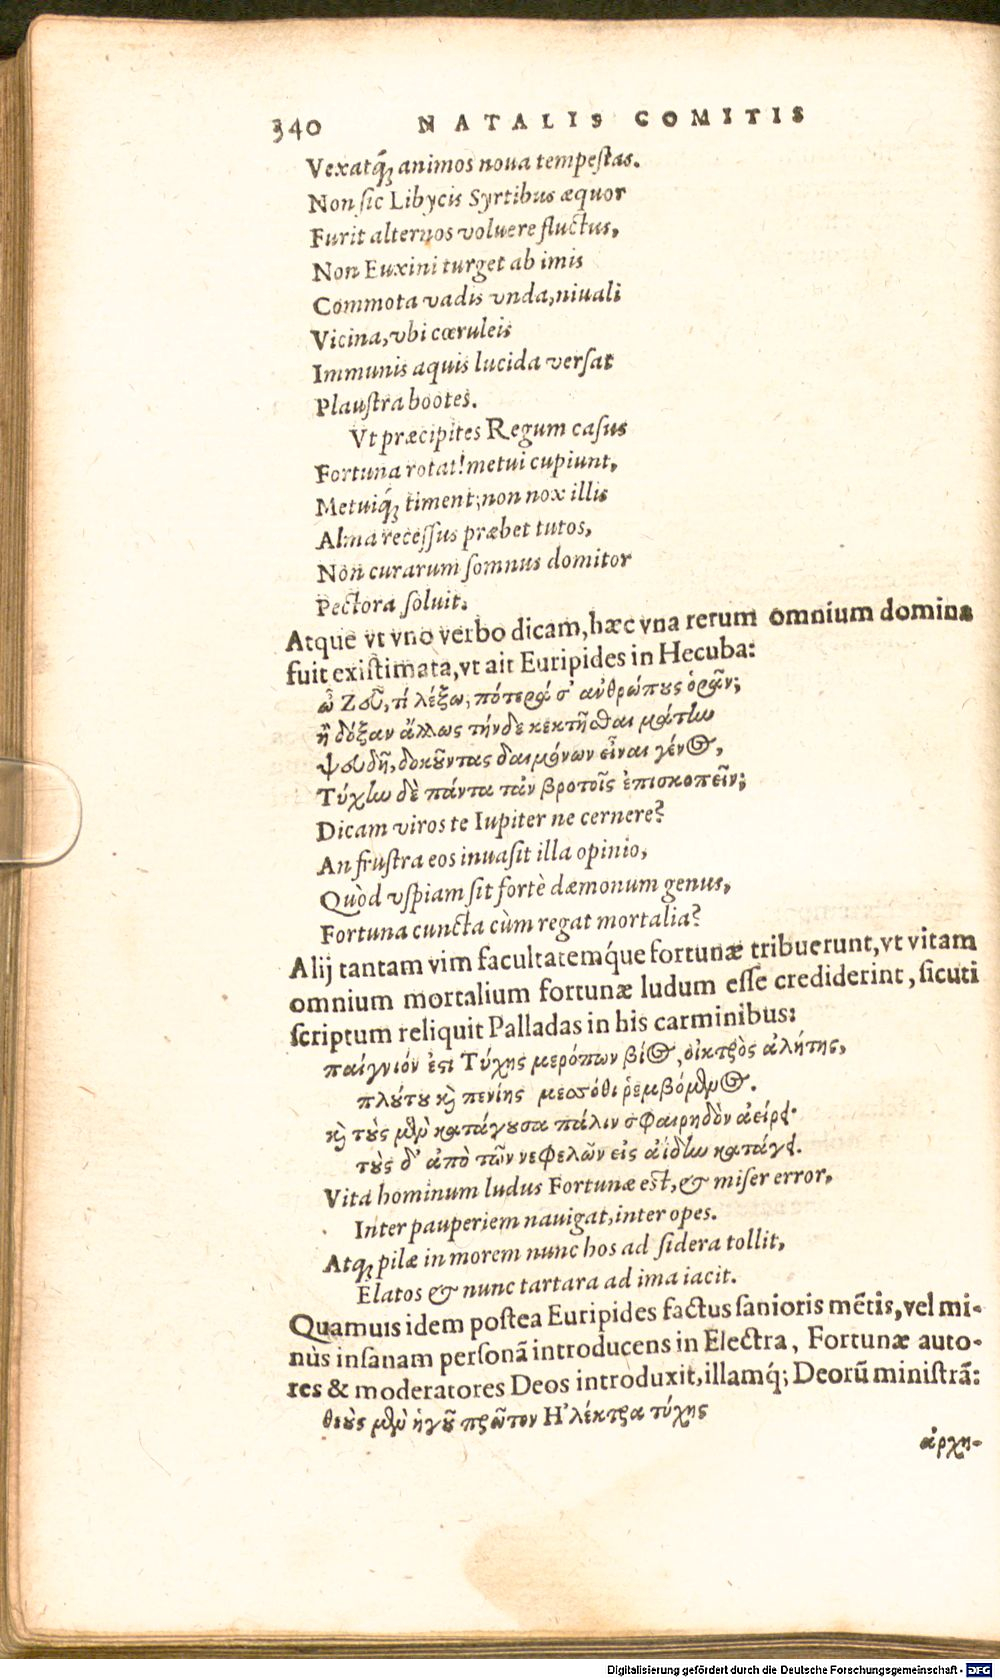 340 NATALIS COMITIS
Vexatq́; animos noua tempestas.
Non sic Libycis Syrtibus æquor
Furit alternos voluere fluctus,
Non Euxini turget ab imis
Commota vadis vnda, niuali
Vicina, vbi cœruleis
Immunis aquis lucida versat
Plaustra bootes.
Vt præcipites Regum casus
Fortuna rotat! metui cupiunt,
Metuiq́; timent; non nox illis
Alma recessus præbet tutos,
Non curarum somnus domitor
Pectora soluit.
Atque vt vno verbo dicam, hæc vna rerum omnium domina
fuit existimata, vt ait Euripides in Hecuba:
ὦ Ζεῦ, τί λέξω; πότερά σ' ἀνθρώπους ὁρᾶν;
ἢ δόξαν ἄλλως τήνδε κεκτῆσθαι μάτην
ψευδῆ, δοκοῦντας δαιμόνων εἶναι γένος,
Τύχην δὲ πάντα τἀν βροτοῖς ἐπισκοπεῖν;
Dicam viros te Iupiter ne cernere?
An frustra eos inuasit illa opinio,
Quòd vspiam sit fortè dæmonum genus,
Fortuna cuncta cùm regat mortalia?
Alij tantam vim facultatemq́ue fortunæ tribuerunt, vt vitam
omnium mortalium fortunæ ludum esse crediderint, sicuti
scriptum reliquit Palladas in his carminibus:
παίγνιόν ἐστι Τύχης μερόπων βίος, οἰκτρὸς ἀλήτης,
πλούτου καὶ πενίης μεσσόθι ῥεμβόμενος.
καὶ τοὺς μὲν κατάγουσα πάλιν σφαιρηδὸν ἀείρει·
τοὺς δ' ἀπὸ τῶν νεφελῶν εἰς ἀΐδην κατάγει.
Vita hominum ludus Fortunæ est, & miser error,
Inter pauperiem nauigat, inter opes.
Atq; pilæ in morem nunc hos ad sidera tollit,
Elatos & nunc tartara ad ima iacit.
Quamuis idem postea Euripides factus sanioris mẽtis, vel mi-
nùs insanam personã introducens in Electra, Fortunæ auto-
res & moderatores Deos introduxit, illamq́; Deorũ ministrã:
θεοὺς μὲν ἡγοῦ πρῶτον Ἠλέκτρα τύχης
ἀρχη-
Digitalisierung gefördert durch die Deutsche Forschungsgemeinschaft - DFG